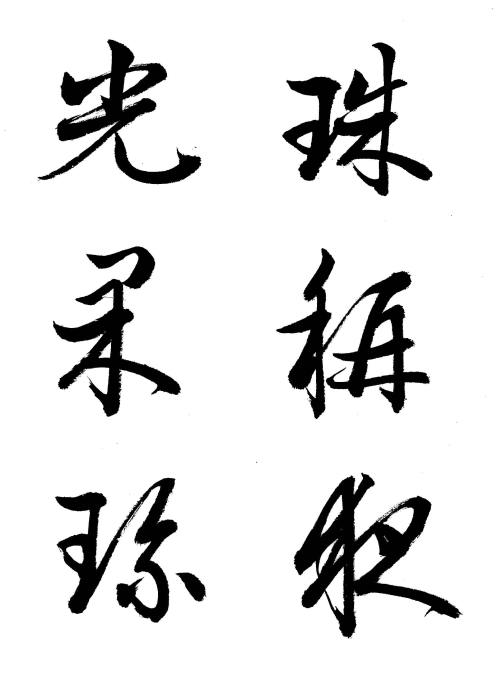 珠稱夜
光果珍